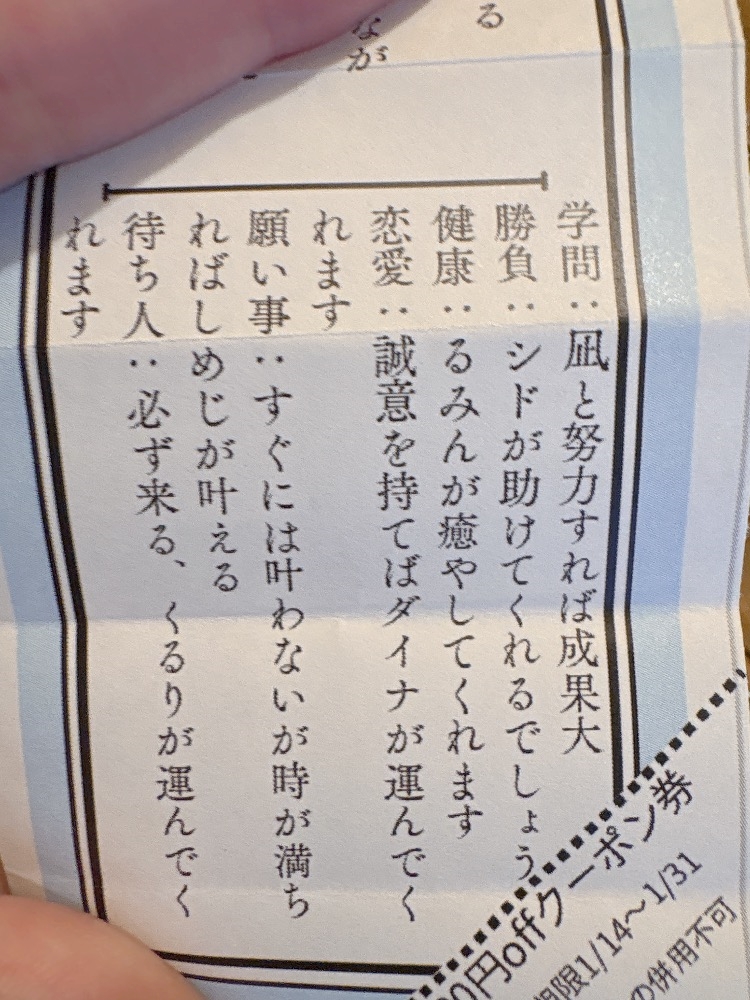 る
なが
学問：凪と努力すれば成果大
勝負：シドが助けてくれるでしょう
健康：るみんが癒やしてくれます
恋愛：誠意を持てばダイナが運んでく
れます
願い事：すぐには叶わないが時が満ち
ればしめじが叶える
待ち人：必ず来る、くるりが運んでく
れます
0円offクーポン券
期限1/14〜1/31
の併用不可